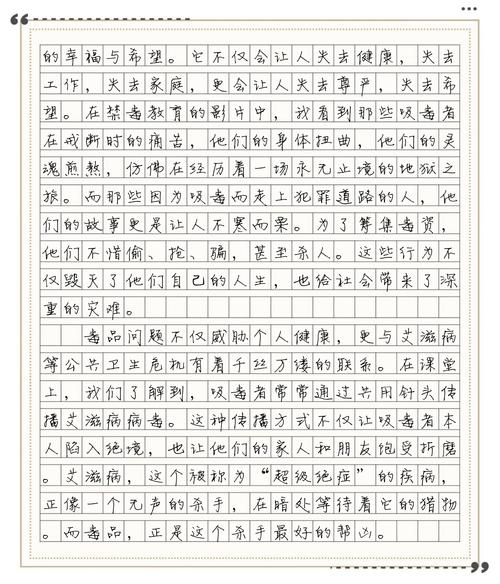 的幸福与希望。它不仅会让人失去健康，失去
工作，失去家庭，更会让人失去尊严，失去希
望。在禁毒教育的影片中，我看到那些吸毒者
在戒断时的痛苦，他们的身体扭曲，他们的灵
魂煎熬，仿佛在经历着一场永无止境的地狱之
旅。而那些因为吸毒而走上犯罪道路的人，他
们的故事更是让人不寒而栗。为了筹集毒资，
他们不惜偷、抢、骗，甚至杀人。这些行为不
仅毁灭了他们自己的人生，也给社会带来了深
重的灾难。
毒品问题不仅威胁个人健康，更与艾滋病
等公共卫生危机有着千丝万缕的联系。在课堂
上，我们了解到，吸毒者常常通过共用针头传
播艾滋病病毒。这种传播方式不仅让吸毒者本
人陷入绝境，也让他们的家人和朋友饱受折磨
。艾滋病，这个被称为“超级绝症”的疾病，
正像一个无声的杀手，在暗处等待着它的猎物
。而毒品，正是这个杀手最好的帮凶。